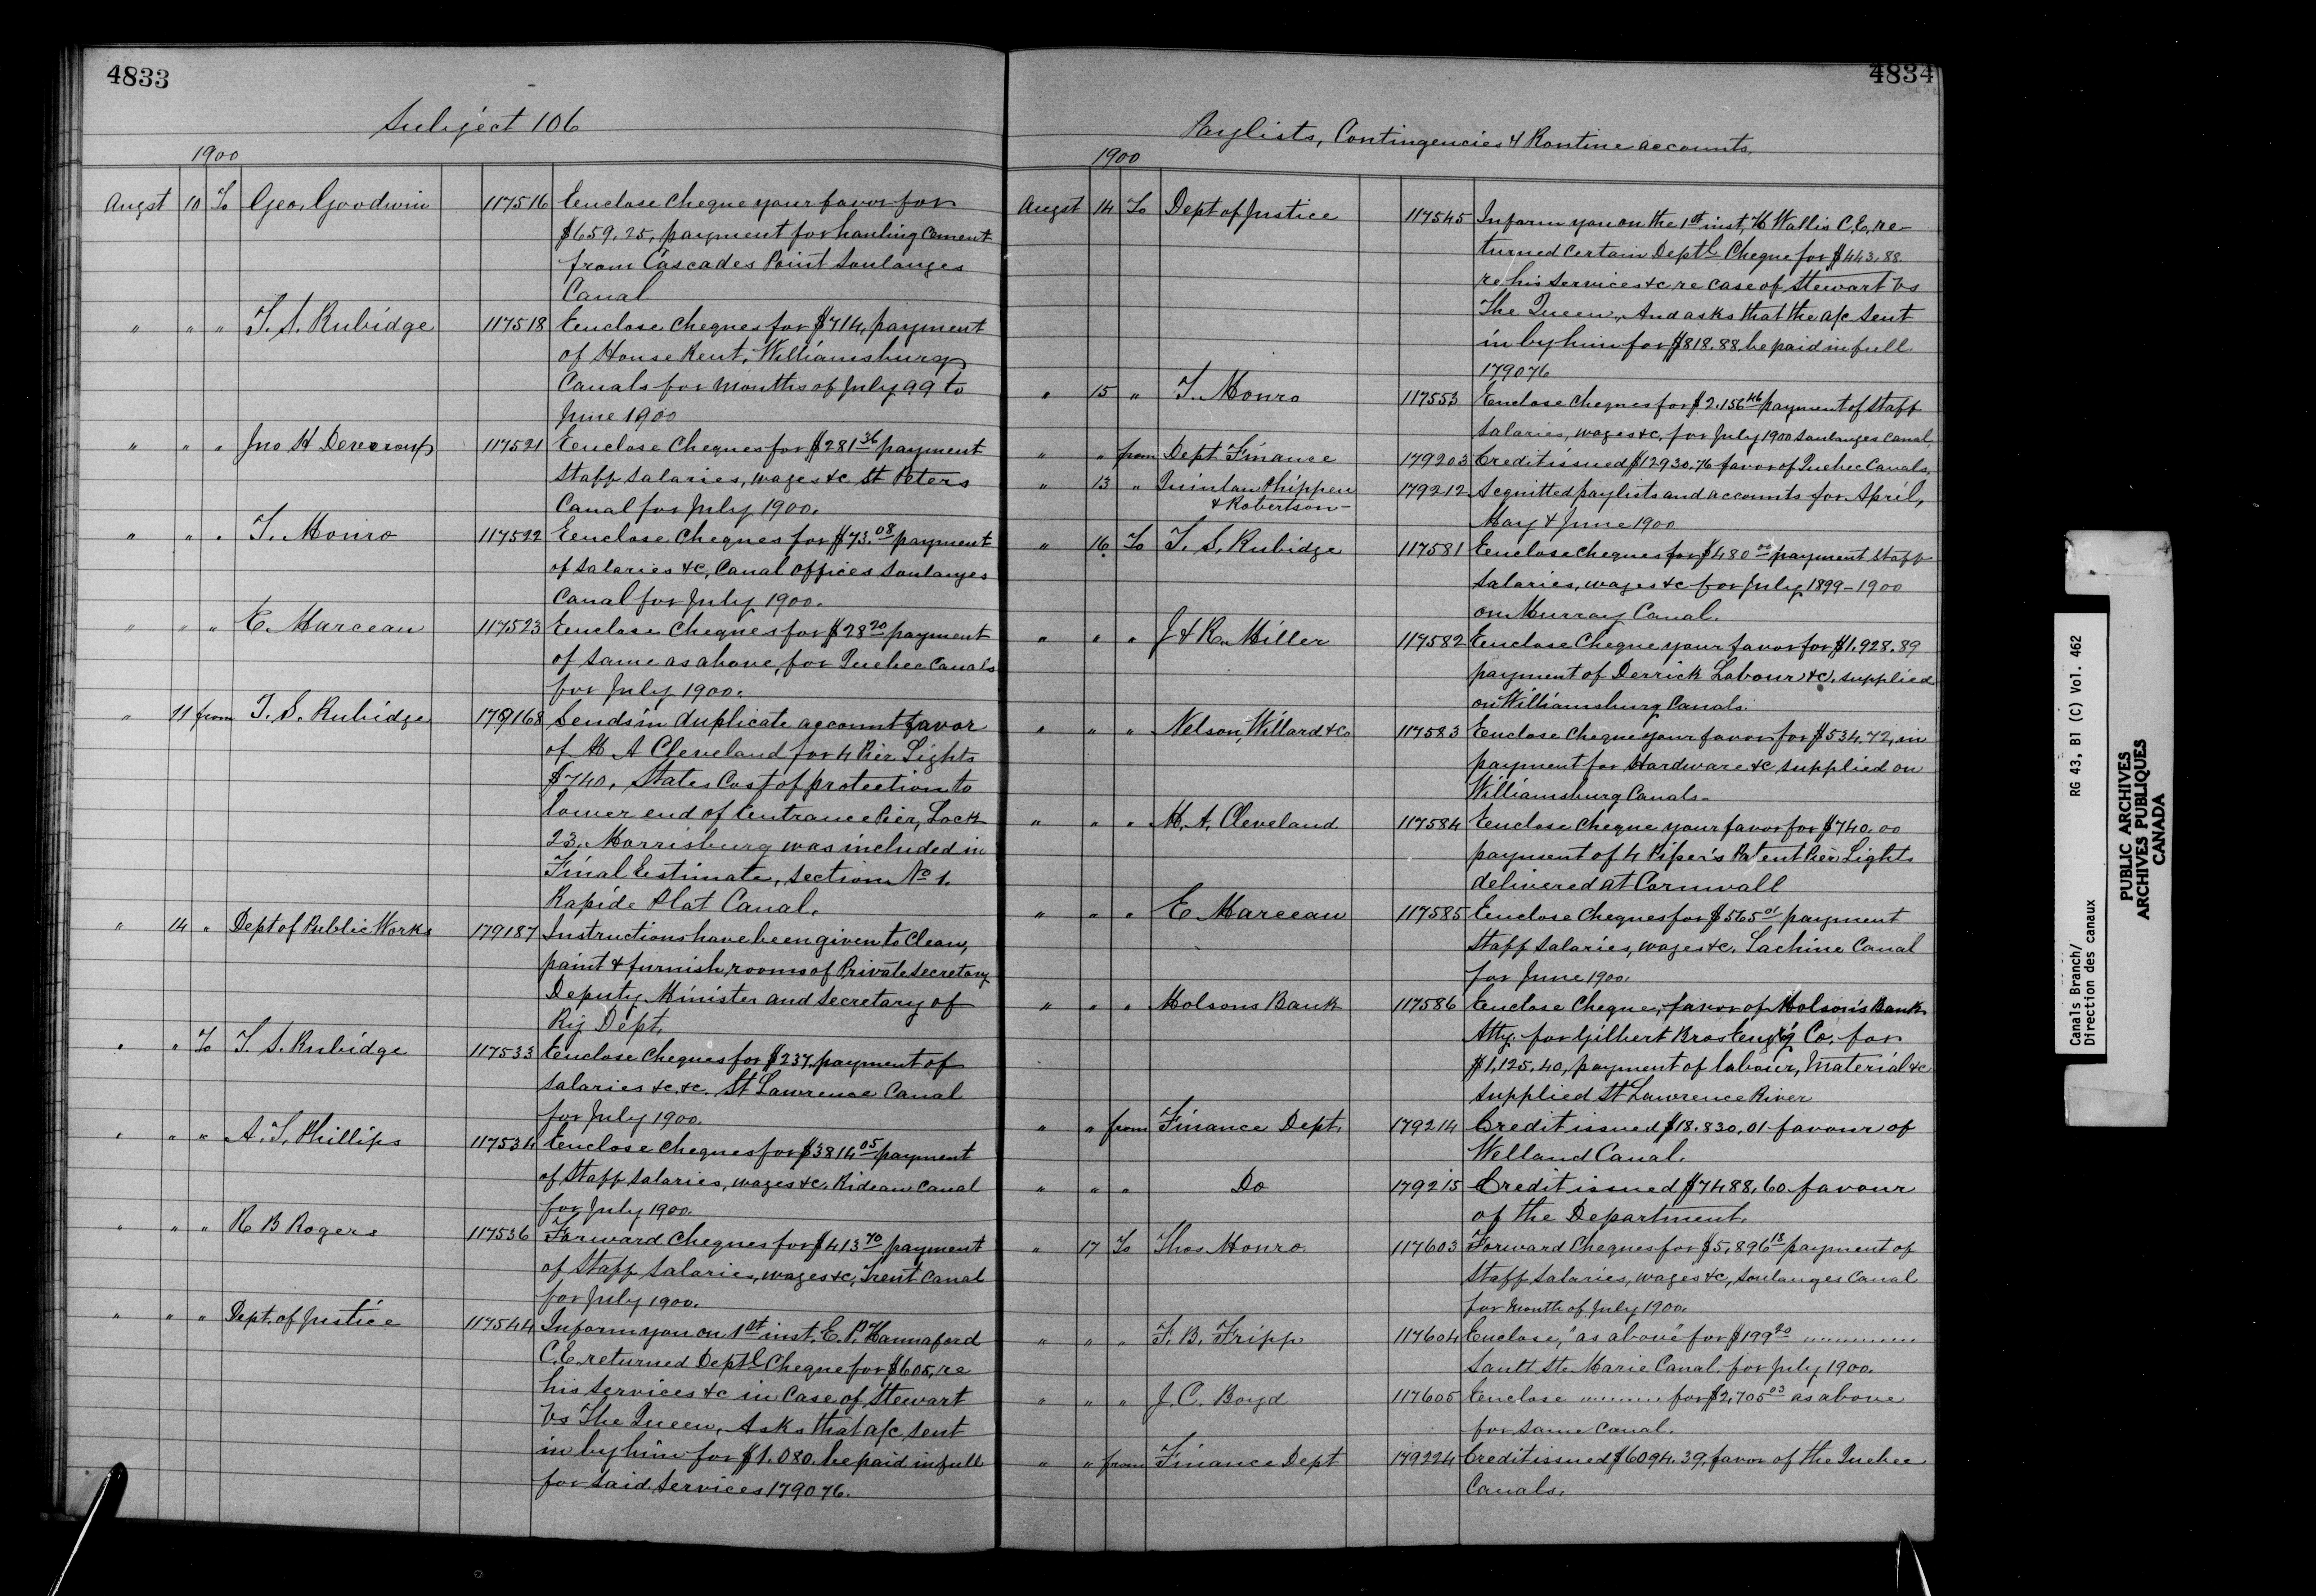 4833
Subject 106
1900
Augst 10 To Geo. Goodwin 117516 Enclose cheque your favor for
$659.25, payment for hauling cement
from Cascades Point Soulanges
Canal
" " " T. S. Rubidge 117518 Enclose cheques for $714, payment
of House Rent, Williamsburg
Canals for months of July 99 to
June 1900
" " " Jno H 117521 Enclose Cheques for $281 36 payment
Staff salaries, wages &c St Peters
Canal for July 1900.
" " " T. Monro 117522 Enclose Cheques for $73.08 payment
of salaries &c, Canal Offices Soulanges
Canal for July 1900.
" " " E. Marceau 117523 Enclose Cheques for $28 20 payment
of same as above, for Quebec Canals
for July 1900.
" 11 from T. S. Rubidge 179168 Sends in duplicate account favor
of M A Cleveland for 4 Pier Lights
$740, States Cost of protection to
lower end of Entrance Pier, Lock
23, Morrisburg was included in
Final Estimate, section No 1.
Rapide Plat Canal.
" 14 " Dept of Public Works 179187 Instructions have been given to Clean,
paint & furnish, rooms of Private Secretary
Deputy Minister and Secretary of
Ry Dept.
" " To T. S. Rubidge 117533 Enclose Cheques for $237, payment of
salaries &c &c. St Lawrence Canal
for July 1900.
" " " A. T. Phillips 117534 Enclose Cheques for $3814 05 payment
of Staff salaries, wages &c. Rideau Canal
for July 1900.
" " " R B Rogers 117536 Forward Cheques for $413 70 payment
of Staff Salaries, wages &c, Trent Canal
for July 1900.
" " " Dept. of Justice 117544 Inform you on 1st inst. E. P. Hannaford
C.E. returned Deptl Cheque for $605, re
his services &c in Case of Stewart
Vs The Queen, Asks that a/c sent
in by him for $1.080. be paid in full
for said services 179076.
4834
Paylists, Contingencies & Routine accounts.
1900
Augst 14 To Dept of Justice 117545 Inform you on the 1st inst, H Wallis C.E. re-
turned certain Deptl Cheque for $443.88
re his services &c re case of Stewart Vs
The Queen, And asks that the a/c sent
in by him for $818.88 be paid in full
179076
" 15 " T. Monro 117553 Enclose cheques for $2.156 46 payment of staff
salaries, wages &c, for July 1900 Soulanges Canal,
" " from Dept Finance 179203 Credit issued $12930.76 favor of Quebec Canals,
" 13 " Quinlan Phippen 179212 Acquitted paylists and accounts for April,
& Robertson- May & June 1900
" 16 To T. S. Rubidge 117581 Enclose cheques for $480 00 payment staff
salaries, wages &c for July 1899-1900
on Murray Canal.
" " " J & R. Miller 117582 Enclose Cheque your favor for $1.928.89
payment of Derrick Labour &c. supplied
on Williamsburg Canals.
" " " Nelson, Willard & Co 117583 Enclose cheque your favor for $534.72, in
payment for Hardware &c supplied on
Williamsburg Canals-
" " " M. A. Cleveland 117584 Enclose cheque your favor for $740.00
payment of 4 Piper's Patent Pier Lights
delivered at Cornwall
" " " E Marceau 117585 Enclose cheques for $565 01 payment
staff salaries, wages &c. Lachine Canal
for June 1900.
" " " Molsons Bank 117586 Enclose Cheque, favor of Molson's Bank
Atty. for Gilbert Bros Eng'g Co. for
$1,125.40, payment of labour, Material &c
supplied St Lawrence River
" " from Finance Dept. 179214 Credit issued $18.830.01 favour of
Welland Canal.
" " " Do 179215 Credit issued $7488.60 favour
of the Department.
" 17 To Thos. Monro. 117603 Forward Cheques for $5,896 18 payment of
Staff salaries, wages &c, Soulanges Canal
for month of July 1900.
" " " F. B. Fripp 117604 Enclose, "as above" for $199 20 """"""
Sault Ste Marie Canal. for July 1900.
" " " J. C. Boyd 117605 Enclose """"" for $2,705 03 as above
for same Canal.
" " from Finance Dept 179224 Credit issued $6094.39, favor of the Quebec
Canals.
Canals Branch/ RG 43, B1 (C) Vol. 462
Direction des canaux
PUBLIC ARCHIVES
ARCHIVES PUBLIQUES
CANADA